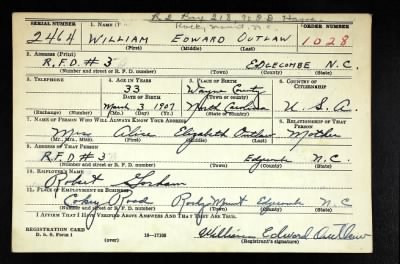 R.D. Box 218
Rocky Mount, N.C.
SERIAL NUMBER 1. NAME (Print) ORDER NUMBER
2464 WILLIAM EDWARD OUTLAW 1028
(First) (Middle) (Last)
2. ADDRESS (Print)
R.F.D. # 3 EDGECOMBE N.C.
(Number and street or R. F. D. number) (Town) (County) (State)
3. TELEPHONE 4. AGE IN YEARS 5. PLACE OF BIRTH 6. COUNTRY OF CITIZENSHIP
33 Wayne County
DATE OF BIRTH (Town or county)
March 3 1907 North Carolina U.S.A.
(Exchange) (Number) (Mo.) (Day) (Yr.) (State or country)
7. NAME OF PERSON WHO WILL ALWAYS KNOW YOUR ADDRESS 8. RELATIONSHIP OF THAT PERSON
Mrs Alice Elizabeth Outlaw Mother
(Mr., Mrs., Miss) (First) (Middle) (Last)
9. ADDRESS OF THAT PERSON
R.F.D. # 3 Edgecombe N.C.
(Number and street or R. F. D. number) (Town) (County) (State)
10. EMPLOYER'S NAME
Robert Gorham
11. PLACE OF EMPLOYMENT OR BUSINESS
Cokey Road Rocky Mount Edgecombe N.C
(Number and street or R. F. D. number) (Town) (County) (State)
I AFFIRM THAT I HAVE VERIFIED ABOVE ANSWERS AND THAT THEY ARE TRUE.
REGISTRATION CARD
D. S. S. Form 1 16—17105 William Edward Outlaw
(Registrant's signature)